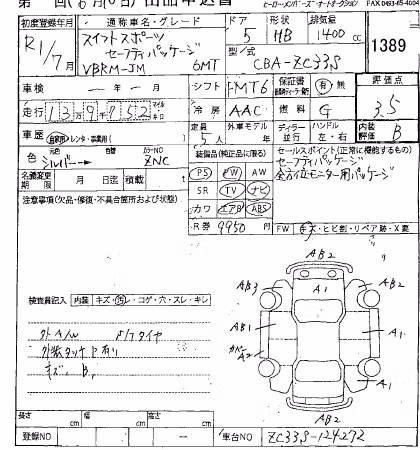 ヒーロー・メンバーズ・オートオークション FAX 0493-45-4004
初度登録年月 通称車名・グレード ドア 形状 排気量
R1/7月 スイフトスポーツ 5 HB 1400 cc 1389
セーフティパッケージ
VBRM-JM 6MT
型式 CBA-ZC33S
車検 年 月 シフト FMT6 保証書 有・無 評価点
走行 139752 マイル キロ 冷房 AAC 燃料 G 3.5
車歴 自家用・レンタ・事業用( ) 定員 5人 外車モデル 年 ディーラー・並行 ハンドル 左・右 内装評価 B
色 元色 シルバー 色替 カラーNO ZNC
名義変更期限 月 日迄 積載
装備品(純正品に限る)
PS PW AW
SR TV ナビ
カワ エアB ABS
R券 9950 円
セールスポイント(正常に機能するもの)
セーフティパッケージ
全方位モニター用パッケージ
注意事項(欠品・修復・不具合箇所および状態)
FW キズ・ヒビ割・リペア跡・X要
検査員記入 内装 キズ・汚・コゲ・穴・スレ・キレ
外AW
タイヤ
外装タッチP有り
キズ、B
AB2
AB3
A1
AB2
AB1
カバーA2
A1
A1
AB2
長さ cm 幅 cm 高さ cm
登録NO 車台NO ZC33S-124272